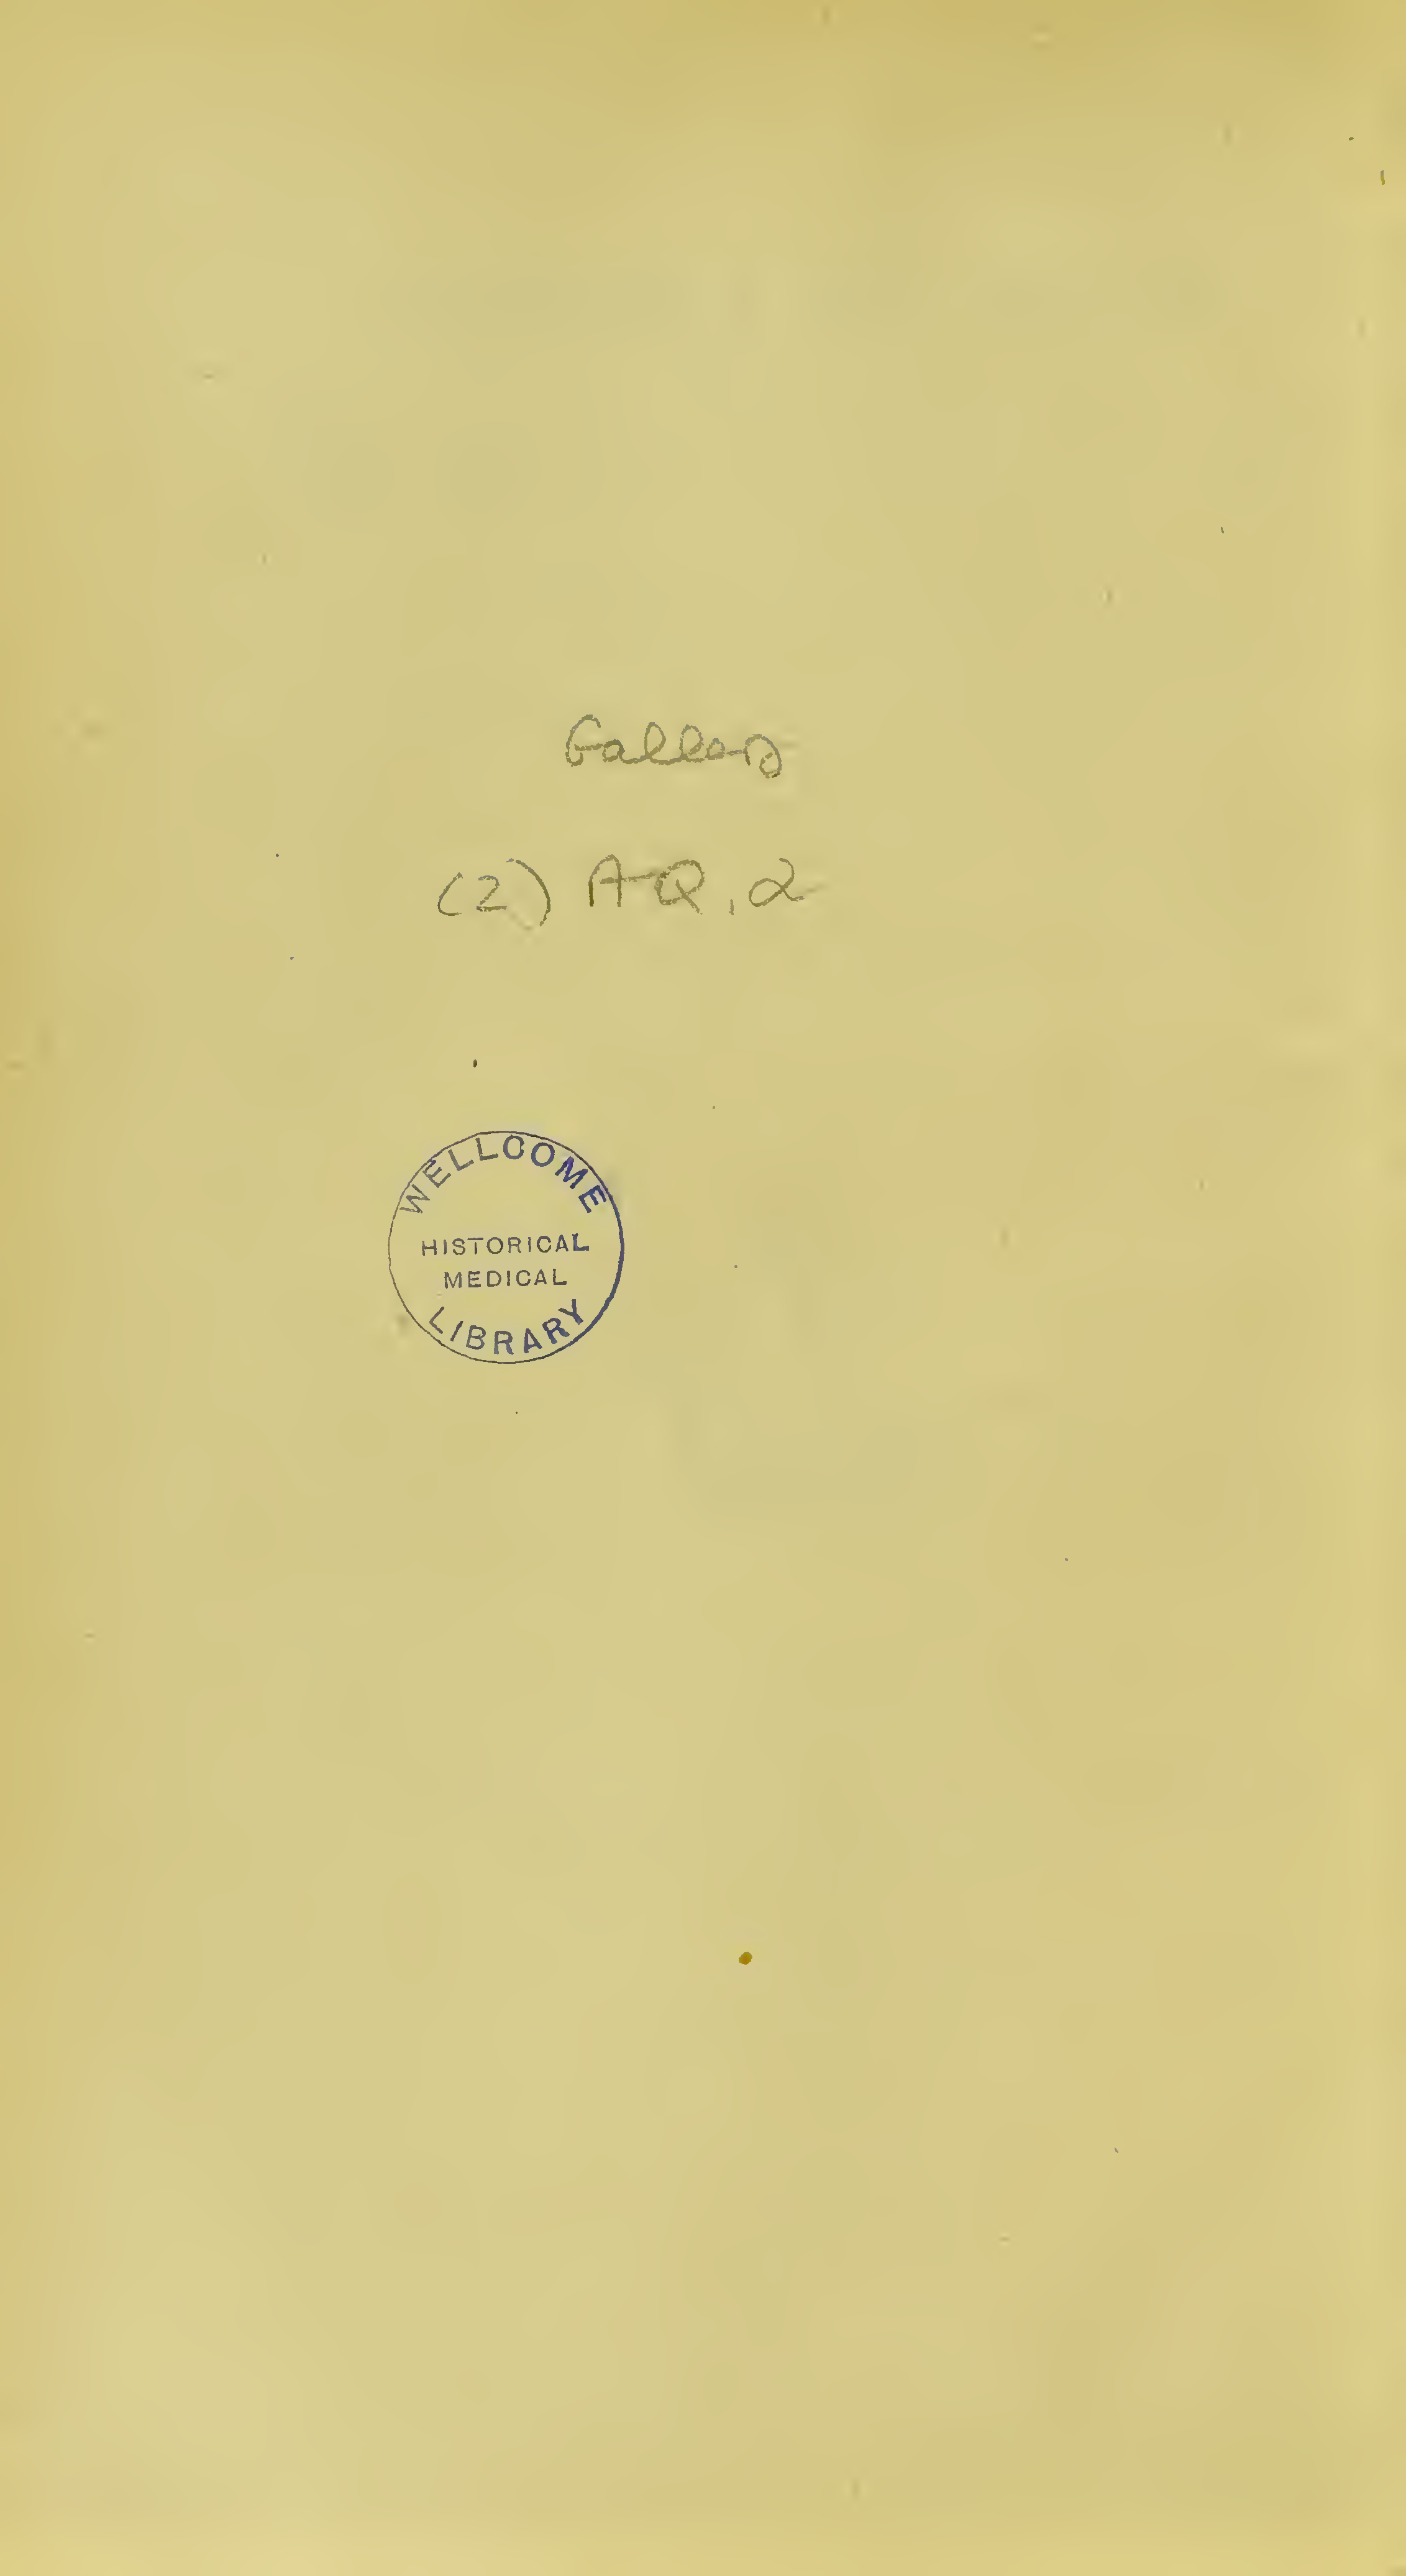 (2) AQ. 2
WELLCOME
HISTORICAL
MEDICAL
LIBRARY